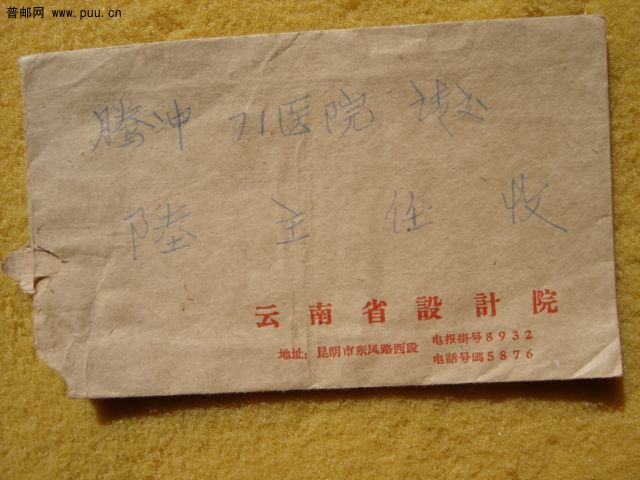 普邮网 www.puu.cn
腾冲 71医院 转交
陸 主 任 收
云南省設計院
地址：昆明市东风路西段
电报掛号8932
电話号碼5876